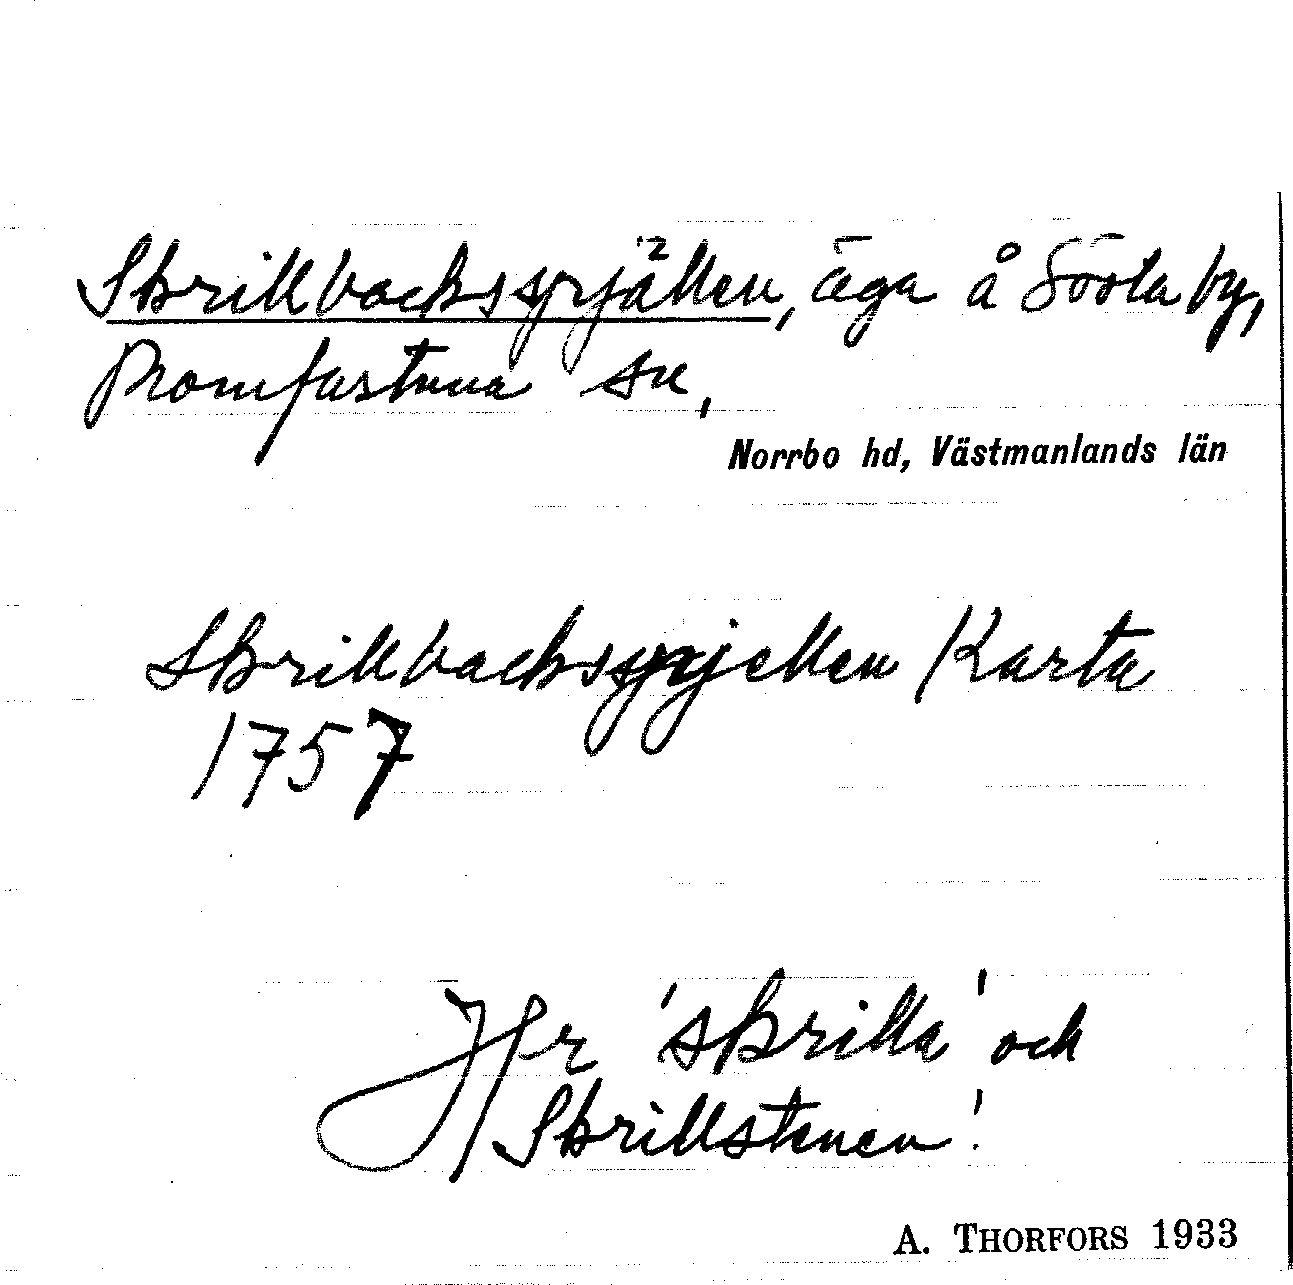 Skrillbacksspjällen, äga å Gösta by,
Romfartuna sn,
Norrbo hd, Västmanlands län
Skrillbacksspjellen Karta
1757
Jfr 'skrilla' och
Skrillstenen!
A. THORFORS 1933